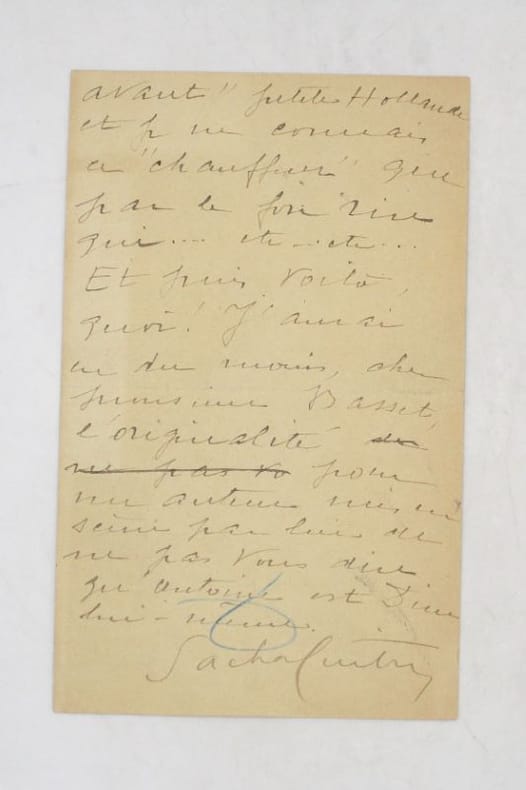 avant "petite Hollande
et je ne connais
ce "chauffeur" que
par le fou rire
qui... etc... etc...
Et puis voilà,
quoi! J'aurai
eu du moins, cher
monsieur Basset,
l'originalité de
ne pas vo pour
un auteur mis en
scène par lui de
ne pas vous dire
qu'Antoine est Dieu
lui-même.
Sacha Guitry